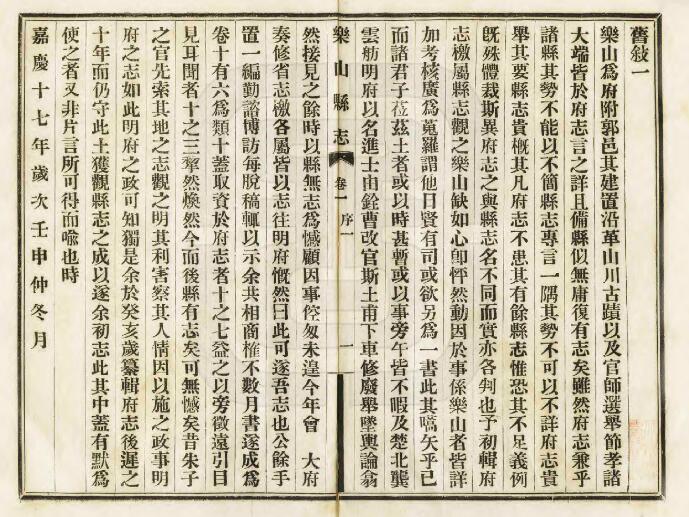 舊敘一
樂山爲府附郭邑其建置沿革山川古蹟以及官師選舉節孝諸
大端皆於府志言之詳且備縣似無庸復有志矣雖然府志兼乎
諸縣其勢不能以不簡縣志專言一隅其勢不可以不詳府志貴
舉其要縣志貴槪其凡府志不患其有餘縣志惟恐其不足義例
旣殊體裁斯異府志之與縣志名不同而實亦各判也予初輯府
志檄屬縣志觀之樂山缺如心卽怦然動因於事係樂山者皆詳
加考核廣爲蒐羅謂他日賢有司或欲另爲一書此其嚆矢乎已
而諸君子莅茲土者或以時甚暫或以事旁午皆不暇及楚北龔
雲舫明府以名進士由銓曹改官斯土甫下車修廢舉墜輿論翕
樂山縣志
卷一 序
一
然接見之餘時以縣無志爲憾顧因事倥匆未遑今年會 大府
奏修省志檄各屬皆以志往明府慨然曰此可遂吾志也公餘手
置一編勤諮博訪每脫稿輒以示余共相商榷不數月書遂成爲
卷十有六爲類十蓋取資於府志者十之七益之以旁徵遠引目
見耳聞者十之三犂然煥然今而後縣有志矣可無憾矣昔朱子
之官先索其地之志觀之明其利害察其人情因以施之政事明
府之志如此明府之政可知獨是余於癸亥歲纂輯府志後遲之
十年而仍守此土獲觀縣志之成以遂余初志此其中蓋有默爲
使之者又非片言所可得而喩也時
嘉慶十七年歲次壬申仲冬月